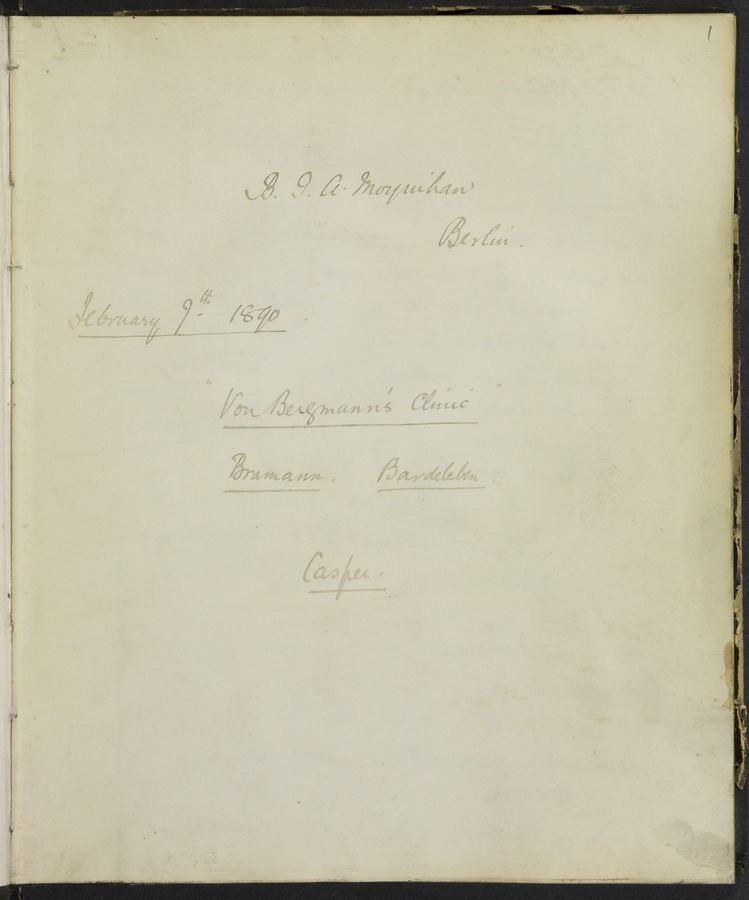 1
B. G. A. Moynihan
Berlin.
February 9th. 1890
"Von Bergmann's Clinic"
Bramann. Bardeleben
Casper.